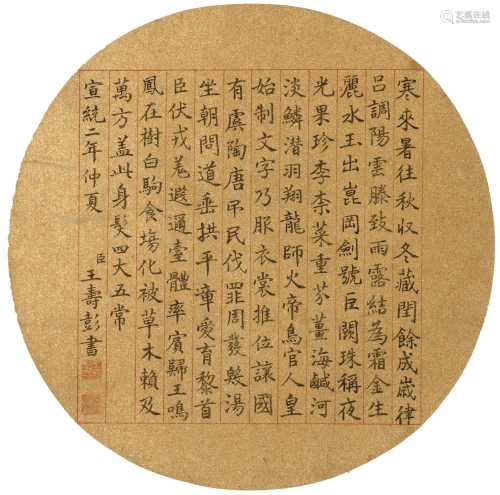 寒來暑往秋収冬藏閏餘成歲律
呂調陽雲騰致雨露結為霜金生
麗水玉出崑岡劍號巨闕珠稱夜
光果珍李柰菜重芥薑海鹹河
淡鱗潛羽翔龍師火帝鳥官人皇
始制文字乃服衣裳推位讓國
有虞陶唐弔民伐罪周發殷湯
坐朝問道垂拱平章愛育黎首
臣伏戎羌遐邇壹體率賓歸王鳴
鳳在樹白駒食場化被草木賴及
萬方盖此身髮四大五常
宣統二年仲夏 臣王壽彭書